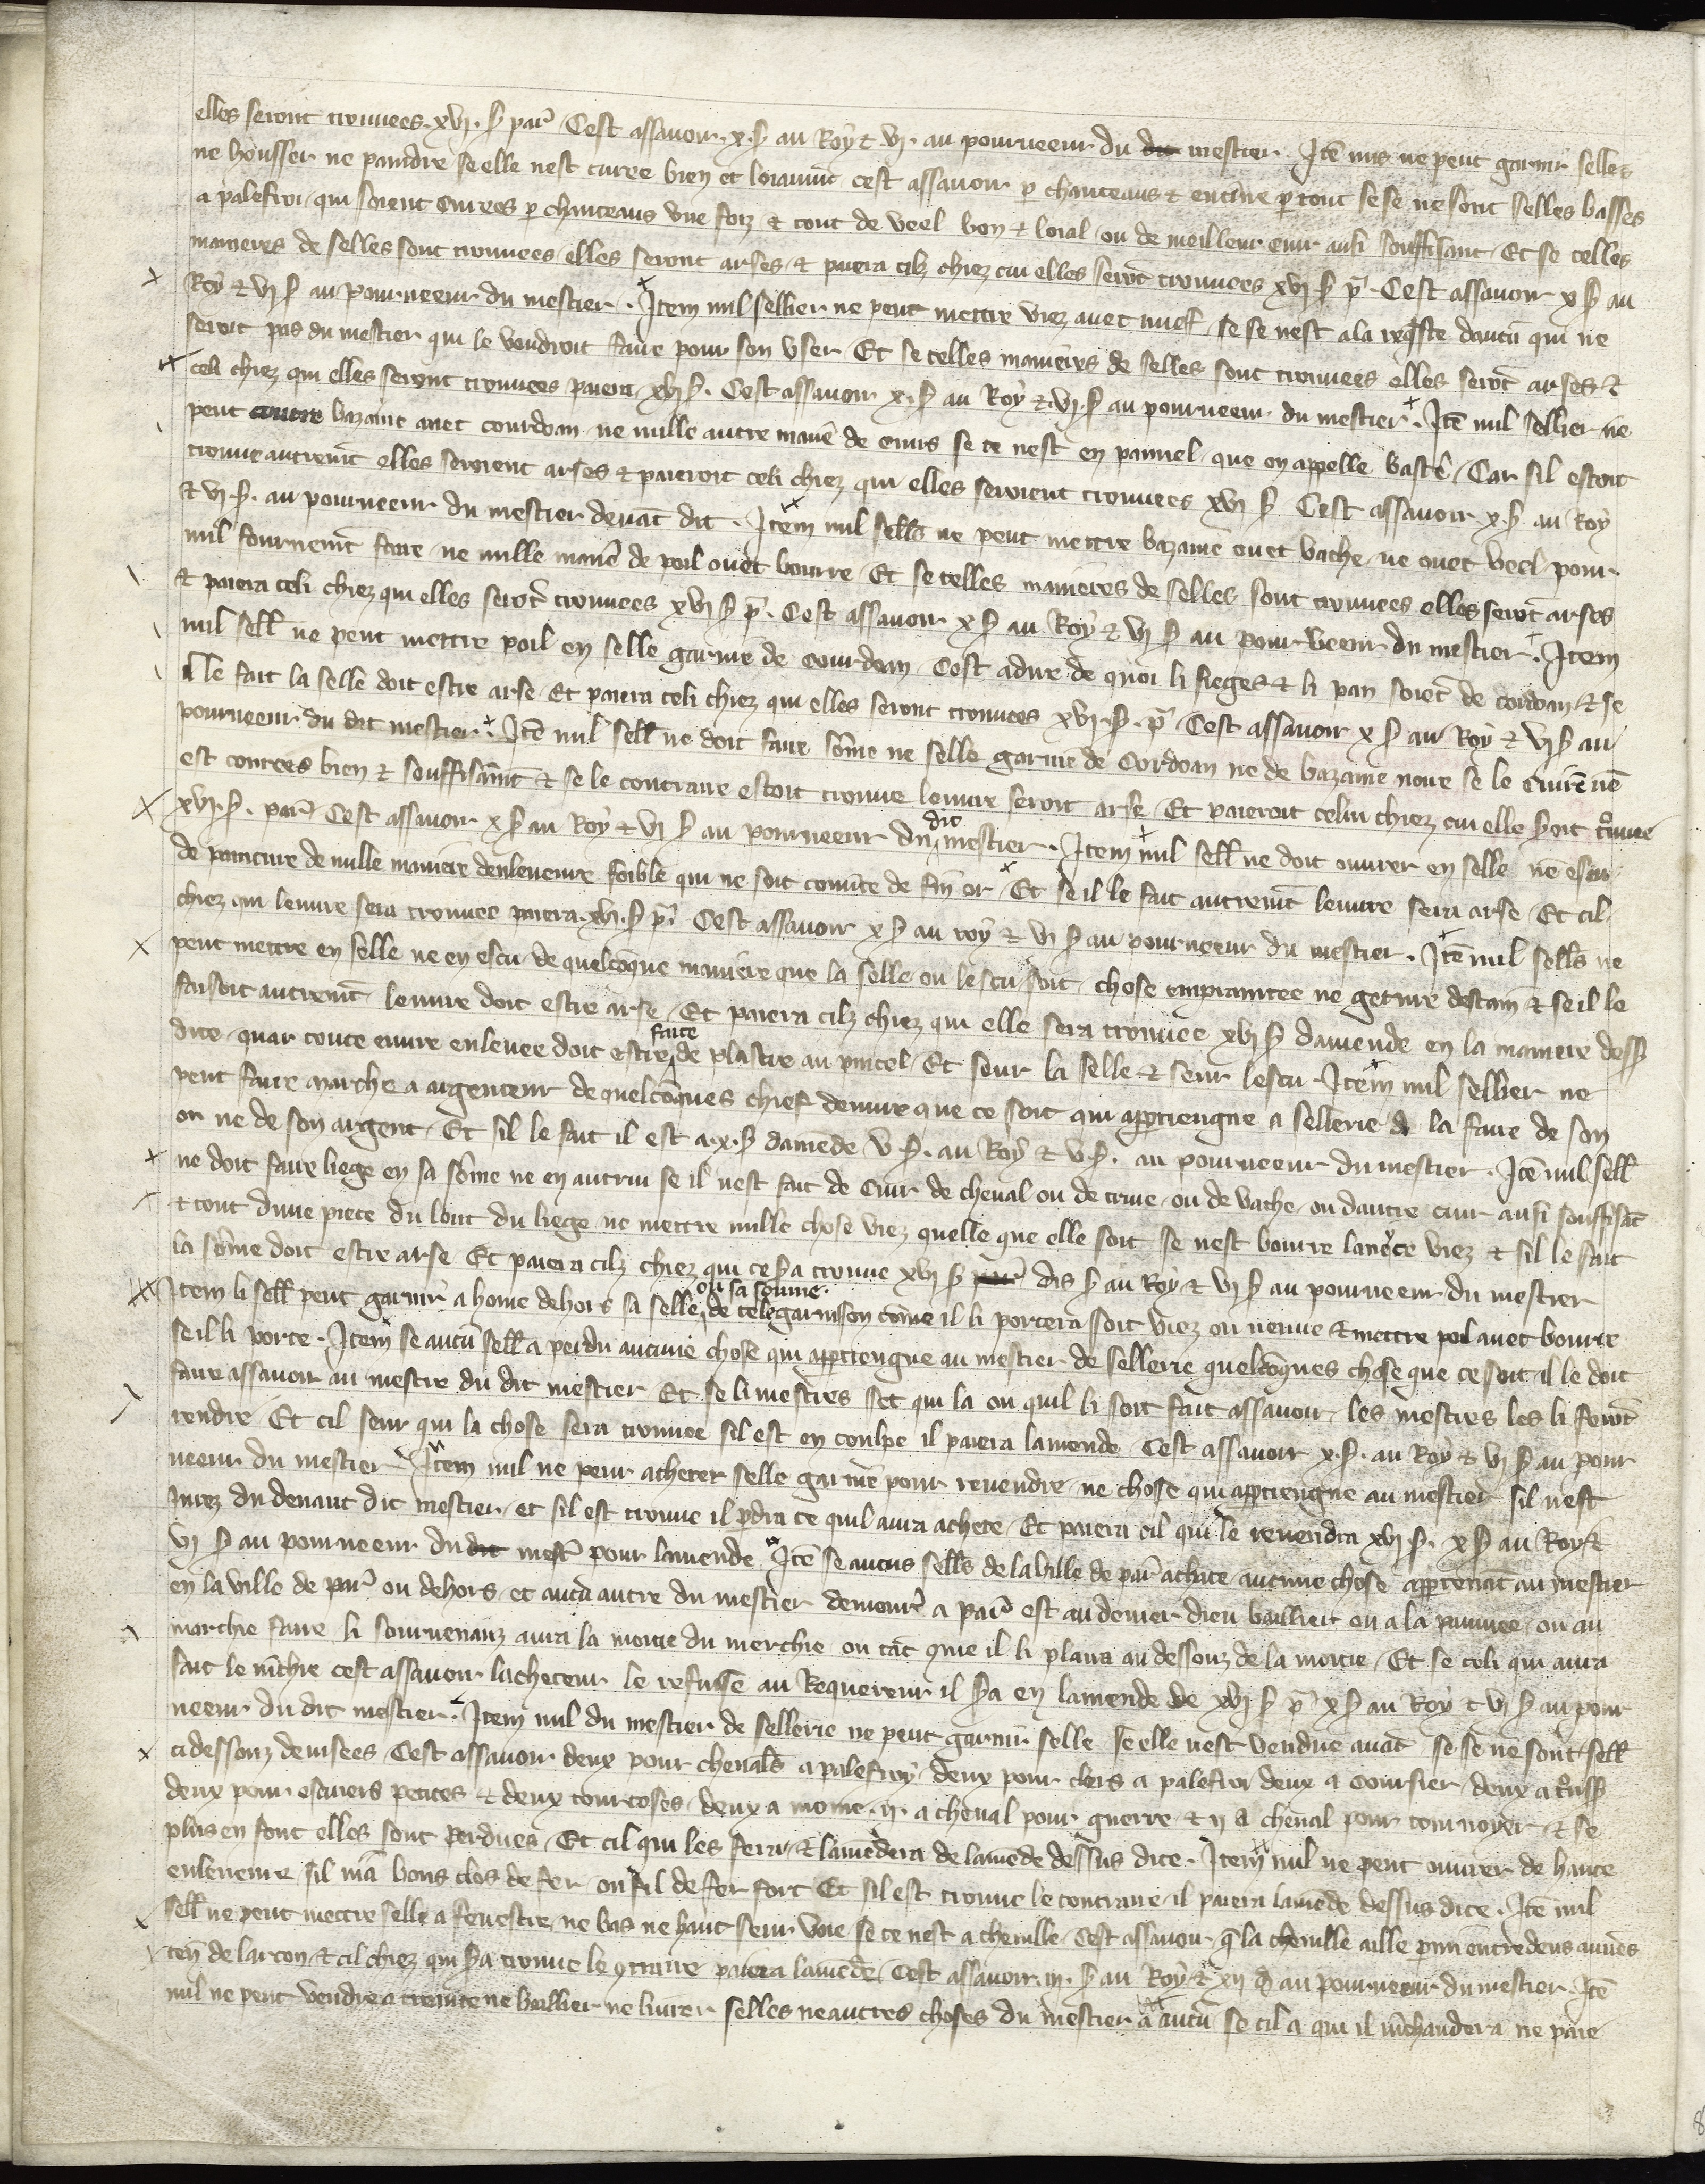 elles seront trouuees .xvi. s̃ par̃ Cest assauoir .x. s̃ au Roy & vi. au pourueeur du mestier . Itẽ nus ne peut garnir selles
ne housser ne paindre se elle nest cuiree bien et loiaumẽt cest assauoir p chanteaus & entine p tout se se ne sont selles basses
a palefroi qui soient cuirees p chanteaus vne foiz & tout de veel bon & loial ou de meilleur cuir ausi souffisant Et se celles
manieres de selles sont trouuees elles seront arses & paiera cilz chiez cui elles serõt trouuees xvi s̃ p̃ . Cest assauoir x s̃ au
Roy & vi s̃ au pourueeur du mestier . Item nul sellier ne peut mettre viez auec nuef se se nest a la reqste daucũ qui ne
seroit pas du mestier qui le voudroit faire pour son vser Et se celles manieres de selles sont trouuees elles serõt arses &
celi chiez qui elles seront trouuees paiera .xvi s̃ . Cest assauoir .x. s̃ au Roy & .vi. s̃ au pourueeur du mestier . Itẽ nul sellier ne
peut bazaine auec courdoan ne nulle autre maniẽ de cuirs se ce nest en pannel que on appelle bastẽ Car sil estoit
trouue autremẽt elles seroient arses & paieroit celi chiez qui elles seroient trouuees xvi s̃ Cest assauoir .x. s̃ au Roy
& vi .s̃. au pourueeur du mestier deuãt dit . Item nul sells ne peut mettre bazaine ouec vache ne ouec veel pour
nul fournemẽt faire ne nulle maniẽ de poil ouec bourre Et se celles manieres de selles sont trouuees elles serõt arses
& paiera celi chiez qui elles serõt trouuees xvi s̃ p̃ . Cest assauoir x s̃ au Roy & vi s̃ au pourueeur du mestier . Item
nul sell ne peut mettre poil en selle garnie de courdoan Cest adire de quoi li sieges & li pan soiẽt de cordoan & se
il le fait la selle doit estre arse Et paiera celi chiez qui elles seront trouuees xvi .s̃. p̃ Cest assauoir x s̃ au Roy & vi s̃ au
pourueeur du dit mestier . Itẽ nul sell ne doit faire sõme ne selle garnie de Cordoan ne de bazaine noire se le cuirẽ nẽ
est contees bien & souffisãmt & se le contraire estoit trouue leuure seroit arse Et paieroit celui chiez cui elle s̃oit trouuee
xvi .s̃. par̃ Cest assauoir x s̃ au Roy & vi s̃ au pourueeur du dit mestier . Item nul sell ne doit ouurer en selle nẽ escu
de pointure de nulle maniere denleueure foible qui ne soit couũte de fin or Et se il le fait autremẽt leuure sera arse Et cil
chiez qui leuure sera trouuee paiera .xvi. s̃ p̃ . Cest assauoir x s̃ au roy & vi s̃ au pourueeur du mestier . Itẽ nul sells ne
peut mettre en selle ne en escu de quelcõque maniere que la selle ou lescu soit chose empraintee ne getiure destain & se il le
faisoit autremẽt leuure doit estre arse Et paiera cilz chiez qui elle sera trouuee xvi s̃ damende en la maniere dess̃
dite quar toute euure enleuee doit estre faite de plastre au pincel Et seur la selle & seur lescu Item nul sellier ne
peut faire marche a argenteur de quelcõques chief deuure que ce soit qui appertiengne a sellerie de la faire de son
or ne de son argent Et sil le fait il est a .x. s̃ damẽde v s̃ . au Roy & v s̃ . au pourueeur du mestier . Itẽ nul sell
ne doit faire liege en sa sõme ne en autrui se il nest fait de cuir de cheual ou de truie ou de vache ou dautre cuir ausi souffisãt
& tout dune piece du lont du liege ne mettre nulle chose viez quelle que elle soit se nest bourre viez & sil le fait
la sõme doit estre arse Et paiera cilz chiez qui ce s̃a trouue xvi s̃ dis s̃ au Roy & vi s̃ au pourueeur du mestier
Item li sell peut garnir a home dehors sa selle ou sa somme de tele garnison cõme il li portera soit viez ou neuue & mettre poil auec bourre
se il li porte . Item se aucũ sell a perdu aucune chose qui appertiengne au mestier de sellerie quelcõques chose que ce soit il le doit
faire assauoir au mestre du dit mestier Et se li mestres set qui la ou quil li soit fait assauoir les mestres les li ferõt
rendre Et cil seur qui la chose sera trouuee sil est en coulpe il paiera lamende Cest assauoir x. s̃ . au Roy & vi s̃ au pour
ueeur du mestier Item nul ne peut acheter selle garnie pour reuendre ne chose qui appertiengne au mestier sil nest
iurez du deuant dit mestier et sil est trouue il pdra ce quil aura achete Et paiera cil qui le reuendra xvi s̃ . x s̃ au Roy &
vi s̃ au pourueeur du mest̃ pour lamende Itẽ se aucus sells de la ville de par̃ achate aucune chose apptenãt au mestier
en la ville de par̃ ou dehors et aucũ autre du mestier demour̃ a par̃ est au denier dieu baillier ou a la paumee ou au
marchie faire li souruenanz aura la moitie du merchie ou tãt que il li plaira au dessouz de la moitie Et se celi qui aura
fait le mchie cest assauoir lacheteur le refusse au Requereur il s̃a en lamende de xvi s̃ p̃ x s̃ au Roy & vi s̃ au pour
ueeur du dit mestier . Item nul du mestier de sellerie ne peut garnir selle se elle nest vendue auãt se se ne sont sell
ci dessouz deuisees Cest assauoir deux pour cheuals a palefroy deux pour clers a palefroi deux a coursier deux a trouss
deux pour escuiers petites & deux tourtoses deux a moine .ii. a cheual pour guerre & ii a cheual pour tournoyer & se
plus en font elles sont perdues Et cil qui les fera & lamẽdera de lamẽde dessus dite . Item nul ne peut ouurer de haute
enleueure sil nia bons clos de fer ou fil de fer fort Et sil est trouue le contraire il paiera lamẽde dessus dite . Itẽ nul
sell ne peut mettre selle a fenestre ne bas ne haut seur voie se ce nest a cheuille Cest assauoir q̃ la cheuille aille pmi entredeus
de larcon & cil chiez qui s̃a trouue le 9traire paiera lamẽde Cest assauoir .iii. s̃ au Roy & xii d̃ au pourueeur du mestier Itẽ
nul ne peut vendre a creance ne baillier ne liurer selles ne autres choses du mestier a aucũ se cil a qui il mchandera ne paie